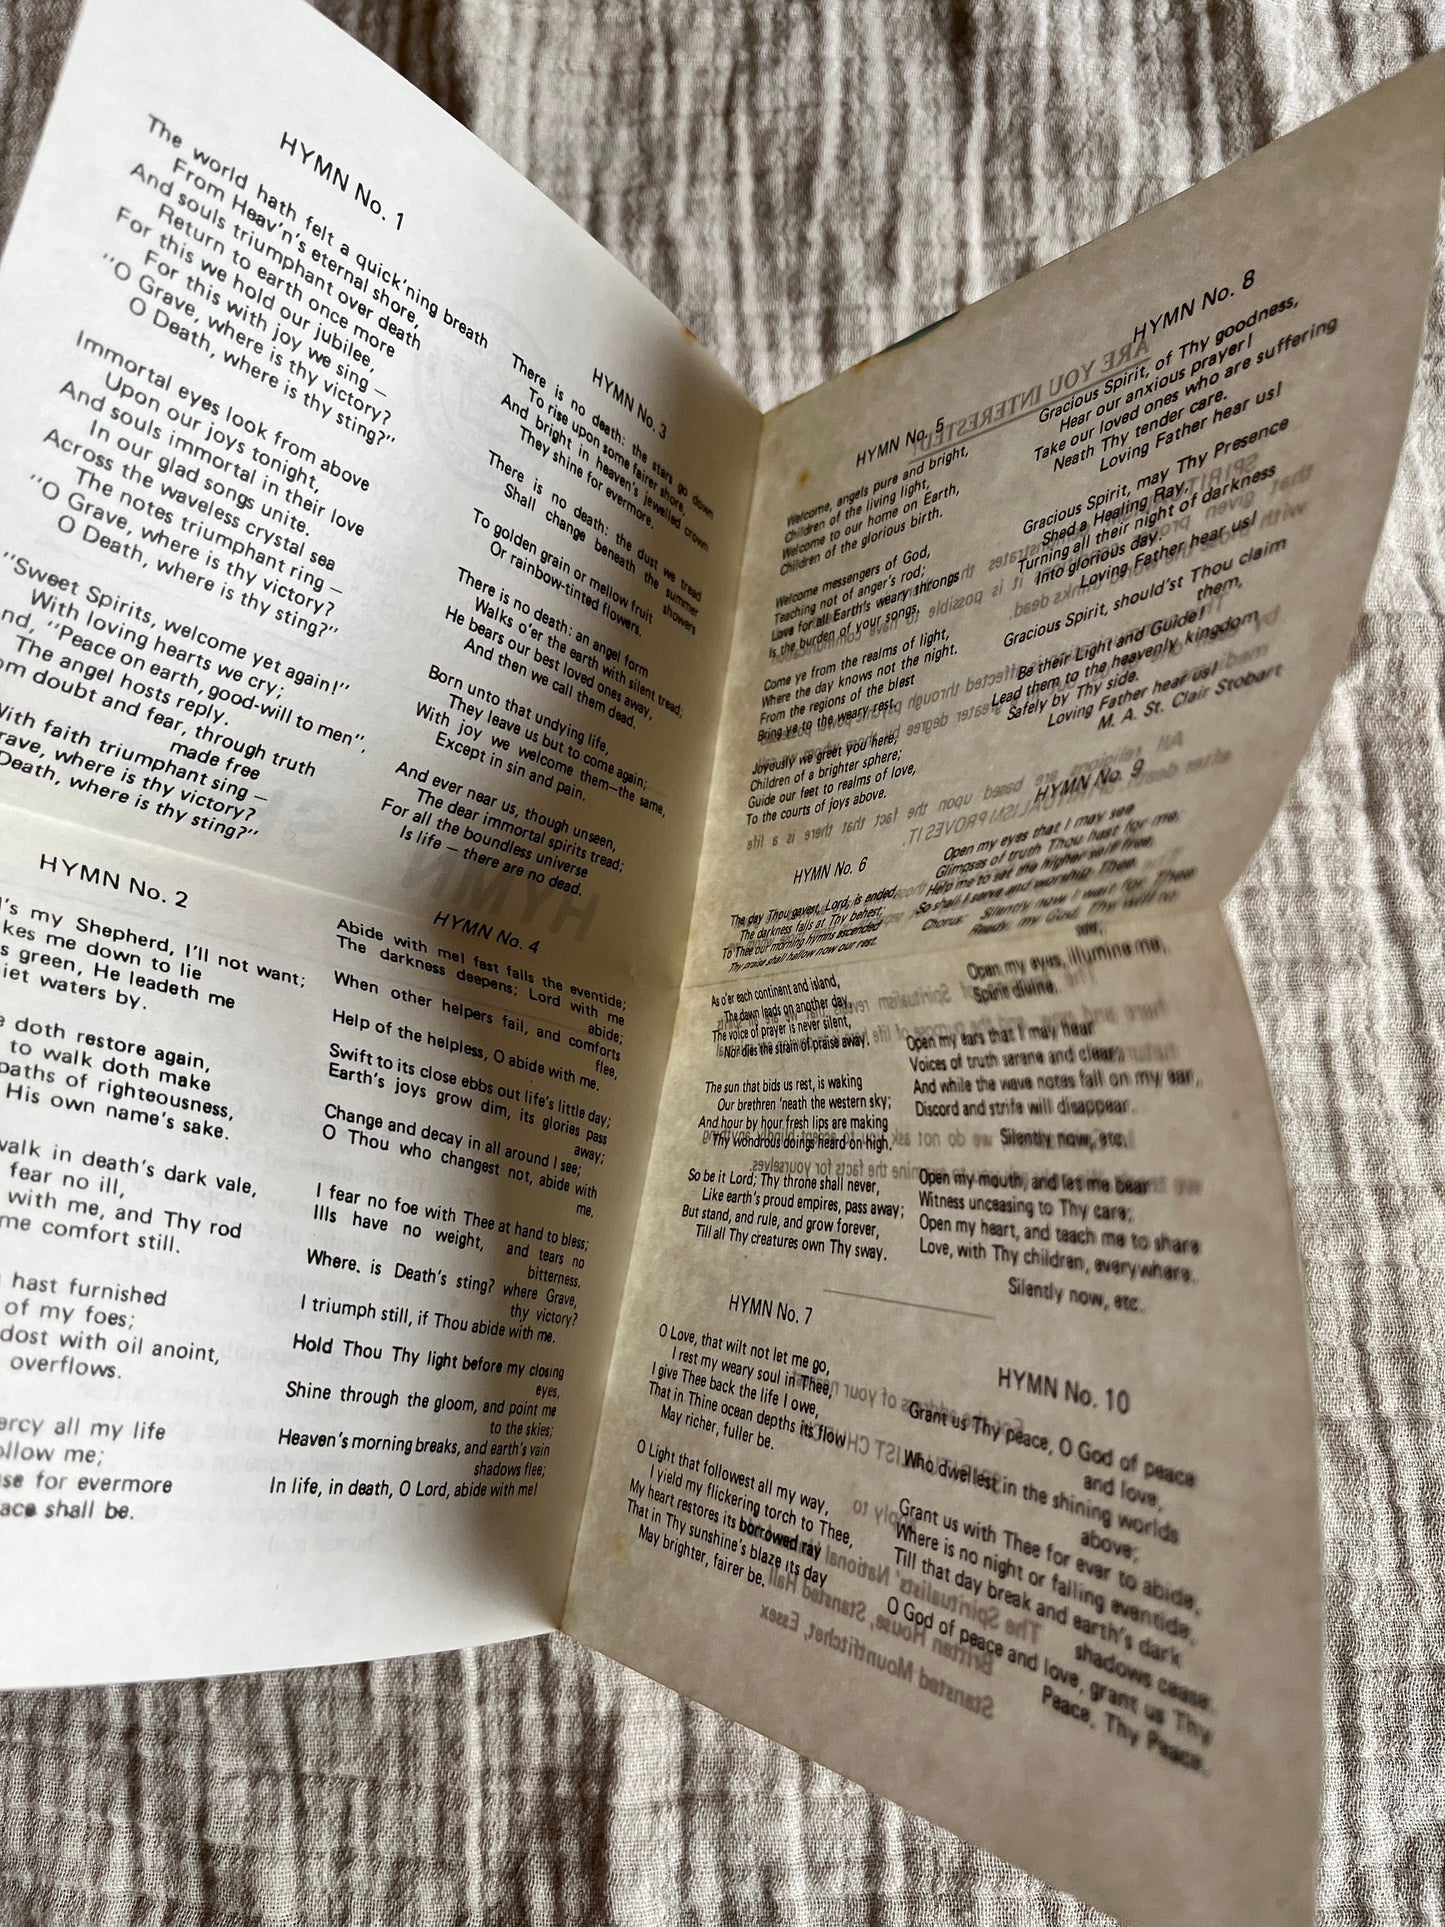 HYMN No. 1
The world hath felt a quick'ning breath
From Heav'n's eternal shore,
And souls triumphant over death
Return to earth once more
For this we hold our jubilee,
For this with joy we sing —
"O Grave, where is thy victory?
O Death, where is thy sting?"
Immortal eyes look from above
Upon our joys tonight,
And souls immortal in their love
In our glad songs unite.
Across the waveless crystal sea
The notes triumphant ring —
"O Grave, where is thy victory?
O Death, where is thy sting?"
"Sweet Spirits, welcome yet again!"
With loving hearts we cry;
nd, "Peace on earth, good-will to men",
The angel hosts reply.
om doubt and fear, through truth
made free
With faith triumphant sing —
rave, where is thy victory?
Death, where is thy sting?"
HYMN No. 2
's my Shepherd, I'll not want;
kes me down to lie
s green, He leadeth me
iet waters by.
e doth restore again,
to walk doth make
paths of righteousness,
His own name's sake.
walk in death's dark vale,
fear no ill,
with me, and Thy rod
me comfort still.
hast furnished
of my foes;
dost with oil anoint,
overflows.
ercy all my life
ollow me;
se for evermore
ace shall be.
HYMN No. 3
There is no death: the stars go down
To rise upon some fairer shore,
And bright in heaven's jewelled crown
They shine for evermore.
There is no death: the dust we tread
Shall change beneath the summer
showers
To golden grain or mellow fruit
Or rainbow-tinted flowers.
There is no death: an angel form
Walks o'er the earth with silent tread;
He bears our best loved ones away,
And then we call them dead.
Born unto that undying life,
They leave us but to come again;
With joy we welcome them—the same,
Except in sin and pain.
And ever near us, though unseen,
The dear immortal spirits tread;
For all the boundless universe
Is life — there are no dead.
HYMN No. 4
Abide with me! fast falls the eventide;
The darkness deepens; Lord with me
abide;
When other helpers fail, and comforts
flee,
Help of the helpless, O abide with me.
Swift to its close ebbs out life's little day;
Earth's joys grow dim, its glories pass
away;
Change and decay in all around I see;
O Thou who changest not, abide with
me.
I fear no foe with Thee at hand to bless;
Ills have no weight, and tears no
bitterness.
Where. is Death's sting? where Grave,
thy victory?
I triumph still, if Thou abide with me.
Hold Thou Thy light before my closing
eyes,
Shine through the gloom, and point me
to the skies;
Heaven's morning breaks, and earth's vain
shadows flee;
In life, in death, O Lord, abide with me!
HYMN No. 5
Welcome, angels pure and bright,
Children of the living light,
Welcome to our home on Earth,
Children of the glorious birth.
Welcome messengers of God,
Teaching not of anger's rod;
Love for all Earth's weary throngs
Is the burden of your songs.
Come ye from the realms of light,
Where the day knows not the night.
From the regions of the blest
Bring ye to the weary rest.
Joyously we greet you here,
Children of a brighter sphere;
Guide our feet to realms of love,
To the courts of joys above.
HYMN No. 6
The day Thou gavest, Lord, is ended,
The darkness falls at Thy behest;
To Thee our morning hymns ascended
Thy praise shall hallow now our rest.
As o'er each continent and island,
The dawn leads on another day,
The voice of prayer is never silent,
Nor dies the strain of praise away.
The sun that bids us rest, is waking
Our brethren 'neath the western sky;
And hour by hour fresh lips are making
Thy wondrous doings heard on high.
So be it Lord; Thy throne shall never,
Like earth's proud empires, pass away;
But stand, and rule, and grow forever,
Till all Thy creatures own Thy sway.
HYMN No. 7
O Love, that wilt not let me go,
I rest my weary soul in Thee,
I give Thee back the life I owe,
That in Thine ocean depths its flow
May richer, fuller be.
O Light that followest all my way,
I yield my flickering torch to Thee,
My heart restores its borrowed ray
That in Thy sunshine's blaze its day
May brighter, fairer be.
HYMN No. 8
Gracious Spirit, of Thy goodness,
Hear our anxious prayer!
Take our loved ones who are suffering
Neath Thy tender care.
Loving Father hear us!
Gracious Spirit, may Thy Presence
Shed a Healing Ray,
Turning all their night of darkness
Into glorious day.
Loving Father hear us!
Gracious Spirit, should'st Thou claim
them,
Be their Light and Guide!
Lead them to the heavenly kingdom
Safely by Thy side.
Loving Father hear us!
M. A. St. Clair Stobart
HYMN No. 9
Open my eyes that I may see
Glimpses of truth Thou hast for me;
Help me to set the higher self free,
So shall I serve and worship Thee.
Chorus: Silently now I wait for Thee
Ready, my God, Thy will to
see;
Open my eyes, illumine me,
Spirit divine.
Open my ears that I may hear
Voices of truth serene and clear;
And while the wave notes fall on my ear,
Discord and strife will disappear.
Silently now, etc.
Open my mouth, and let me bear
Witness unceasing to Thy care;
Open my heart, and teach me to share
Love, with Thy children, everywhere.
Silently now, etc.
HYMN No. 10
Grant us Thy peace, O God of peace
and love,
Who dwellest in the shining worlds
above;
Grant us with Thee for ever to abide,
Where is no night or falling eventide,
Till that day break and earth's dark
shadows cease.
O God of peace and love, grant us Thy
Peace, Thy Peace.